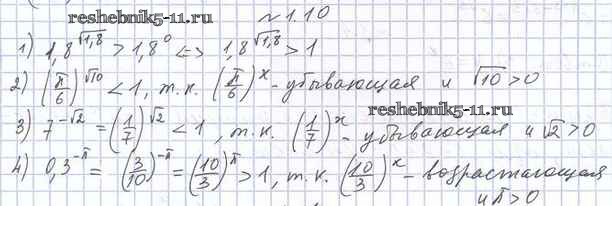 reshebnik5-11.ru № 1.10
1) 1,8^√1,8 > 1,8^0 <=> 1,8^√1,8 > 1
2) (π/6)^√10 < 1, т.к. (π/6)^x - убывающая и √10 > 0
reshebnik5-11.ru
3) 7^-√2 = (1/7)^√2 < 1, т.к. (1/7)^x - убывающая и √2 > 0
4) 0,3^-π = (3/10)^-π = (10/3)^π > 1, т.к. (10/3)^x - возрастающая
и π > 0